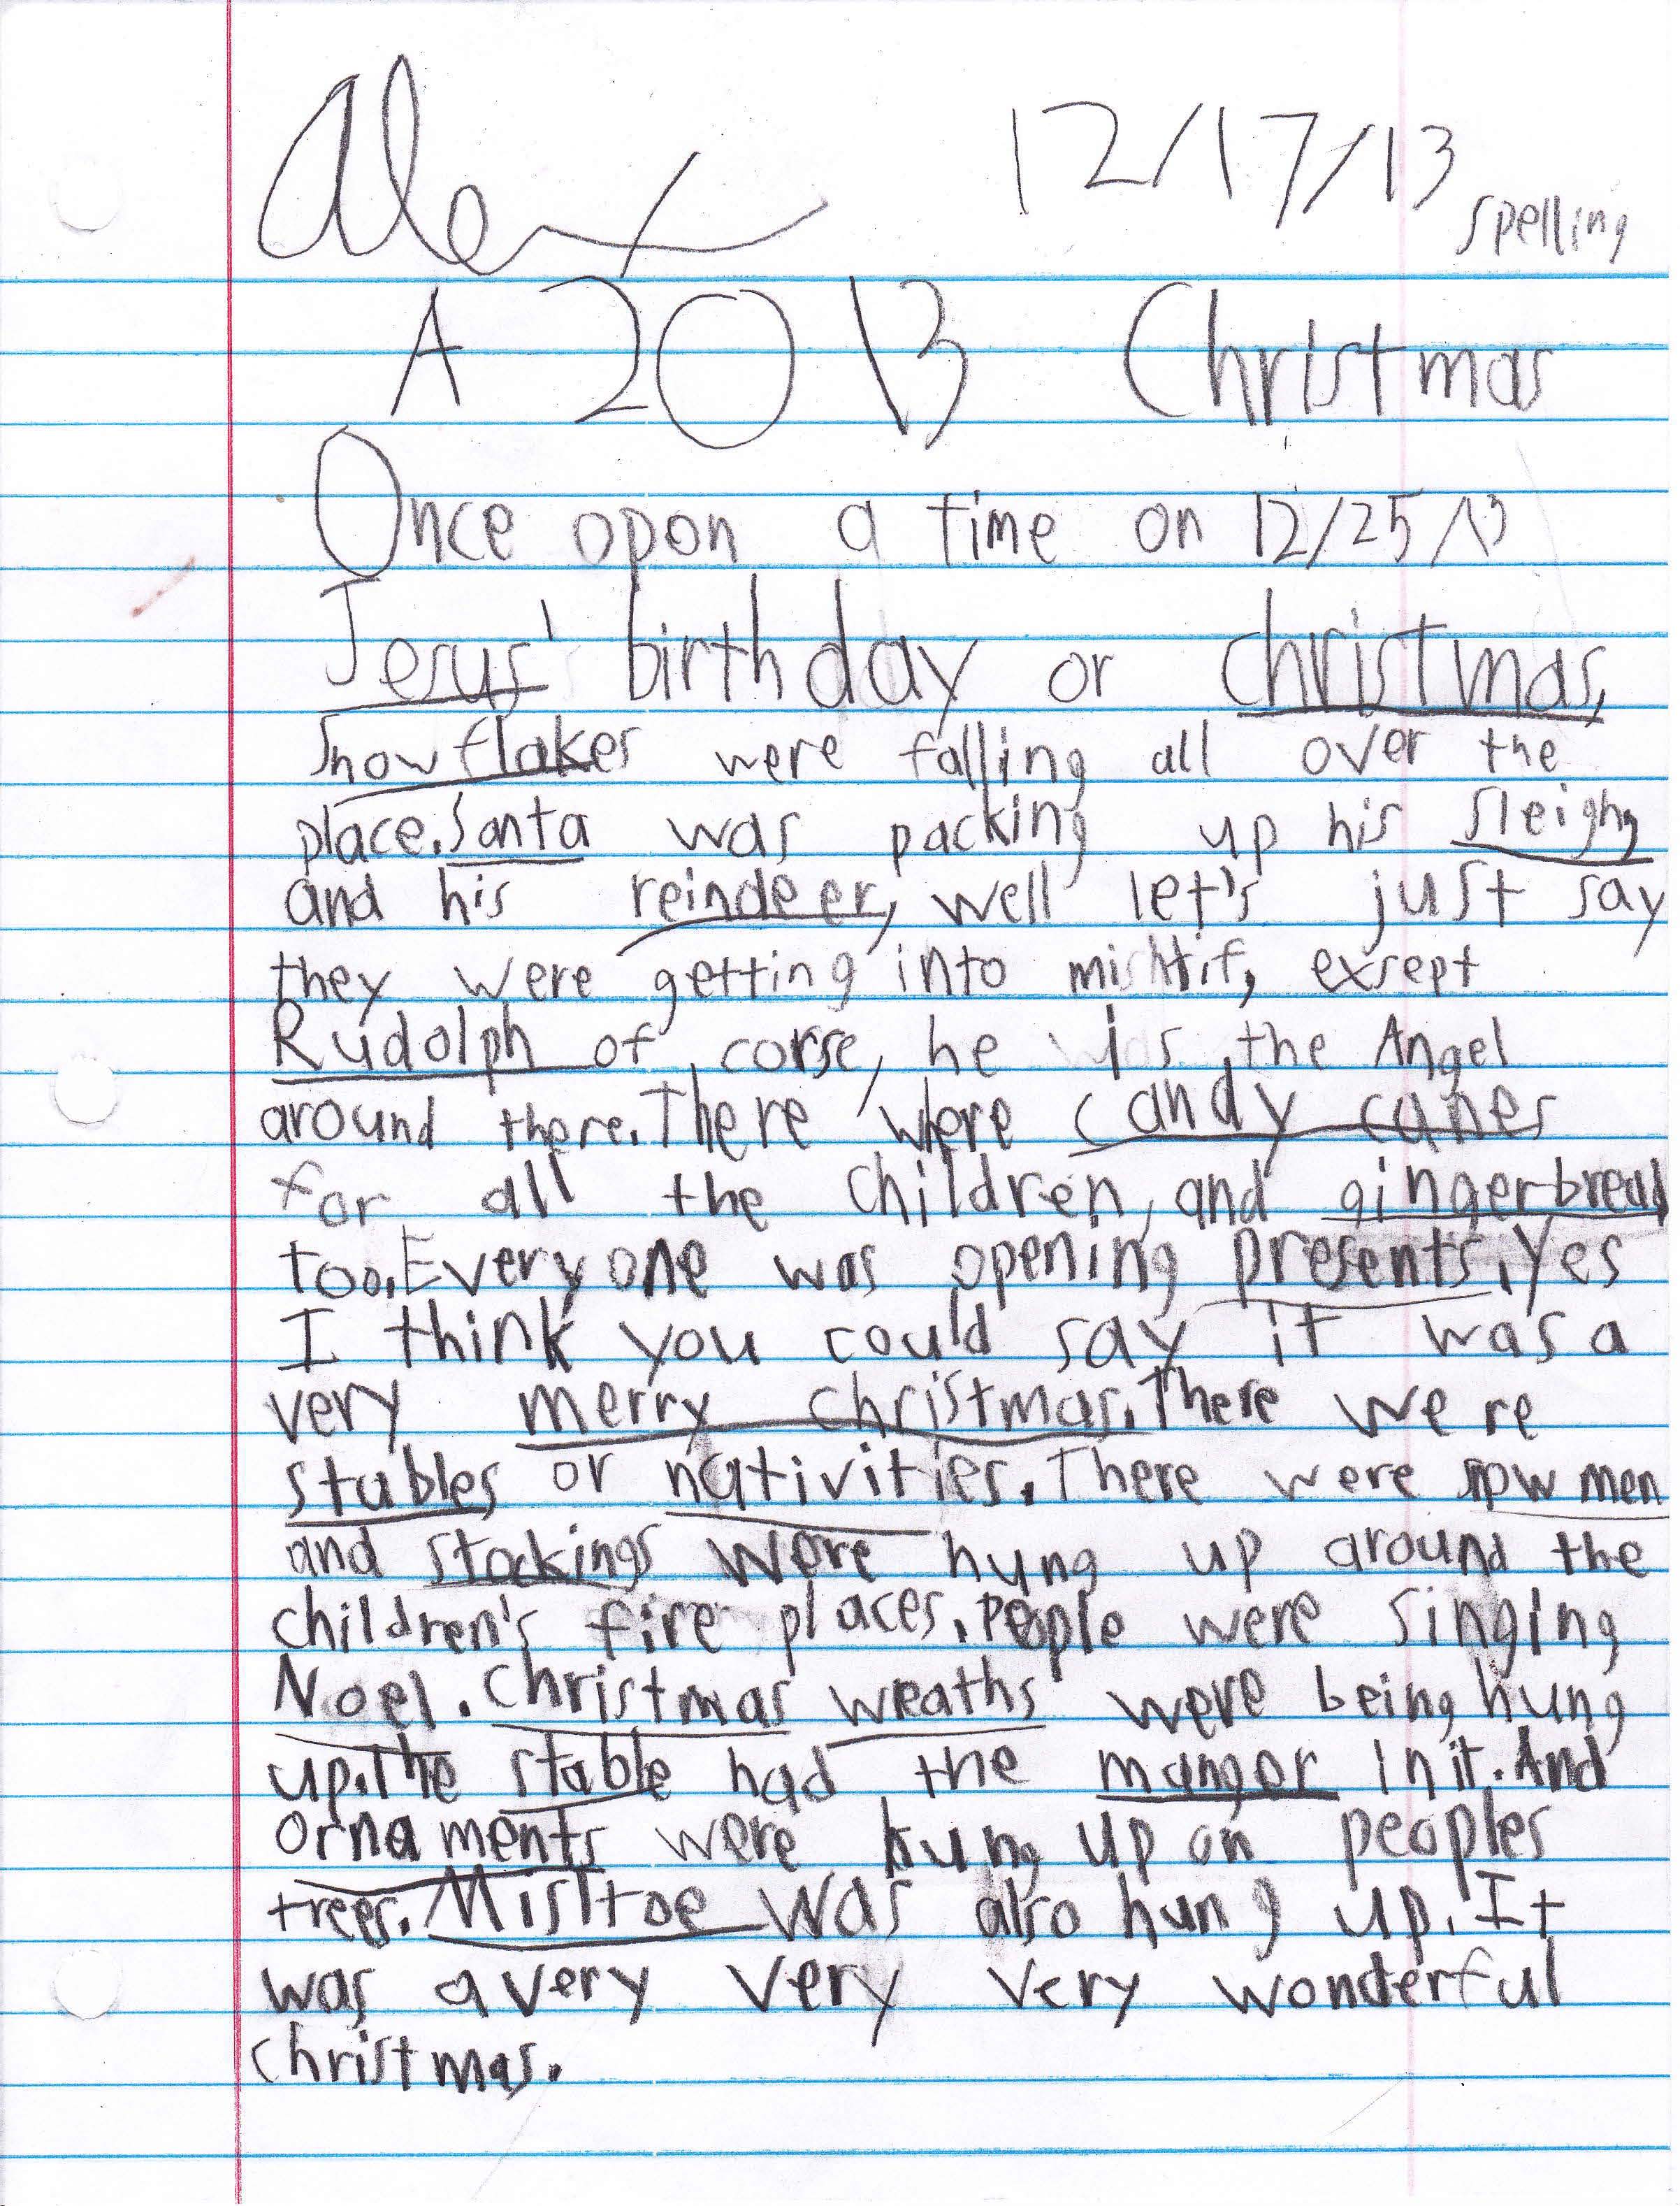 Alex 12/17/13
spelling
A 2013 Christmas
Once opon a time on 12/25/13
Jesus' birthday or christmas,
Snowflakes were falling all over the
place. Santa was packing up his sleighy
and his reindeer, well let's just say
they were getting into mishtif, exsept
Rudolph of corse, he is the Angel
around there. There where candy canes
for all the children, and gingerbread
too. Everyone was opening presents. Yes
I think you could say it was a
very merry christmas. There were
stables or nativities. There were snow men
and stockings were hung up around the
children's fire places. People were singing
Noel. Christmas wreaths were being hung
up. The stable had the manger in it. And
ornaments were hung up on peoples
trees. Misltoe was also hung up. It
was a very very very wonderful
christmas.